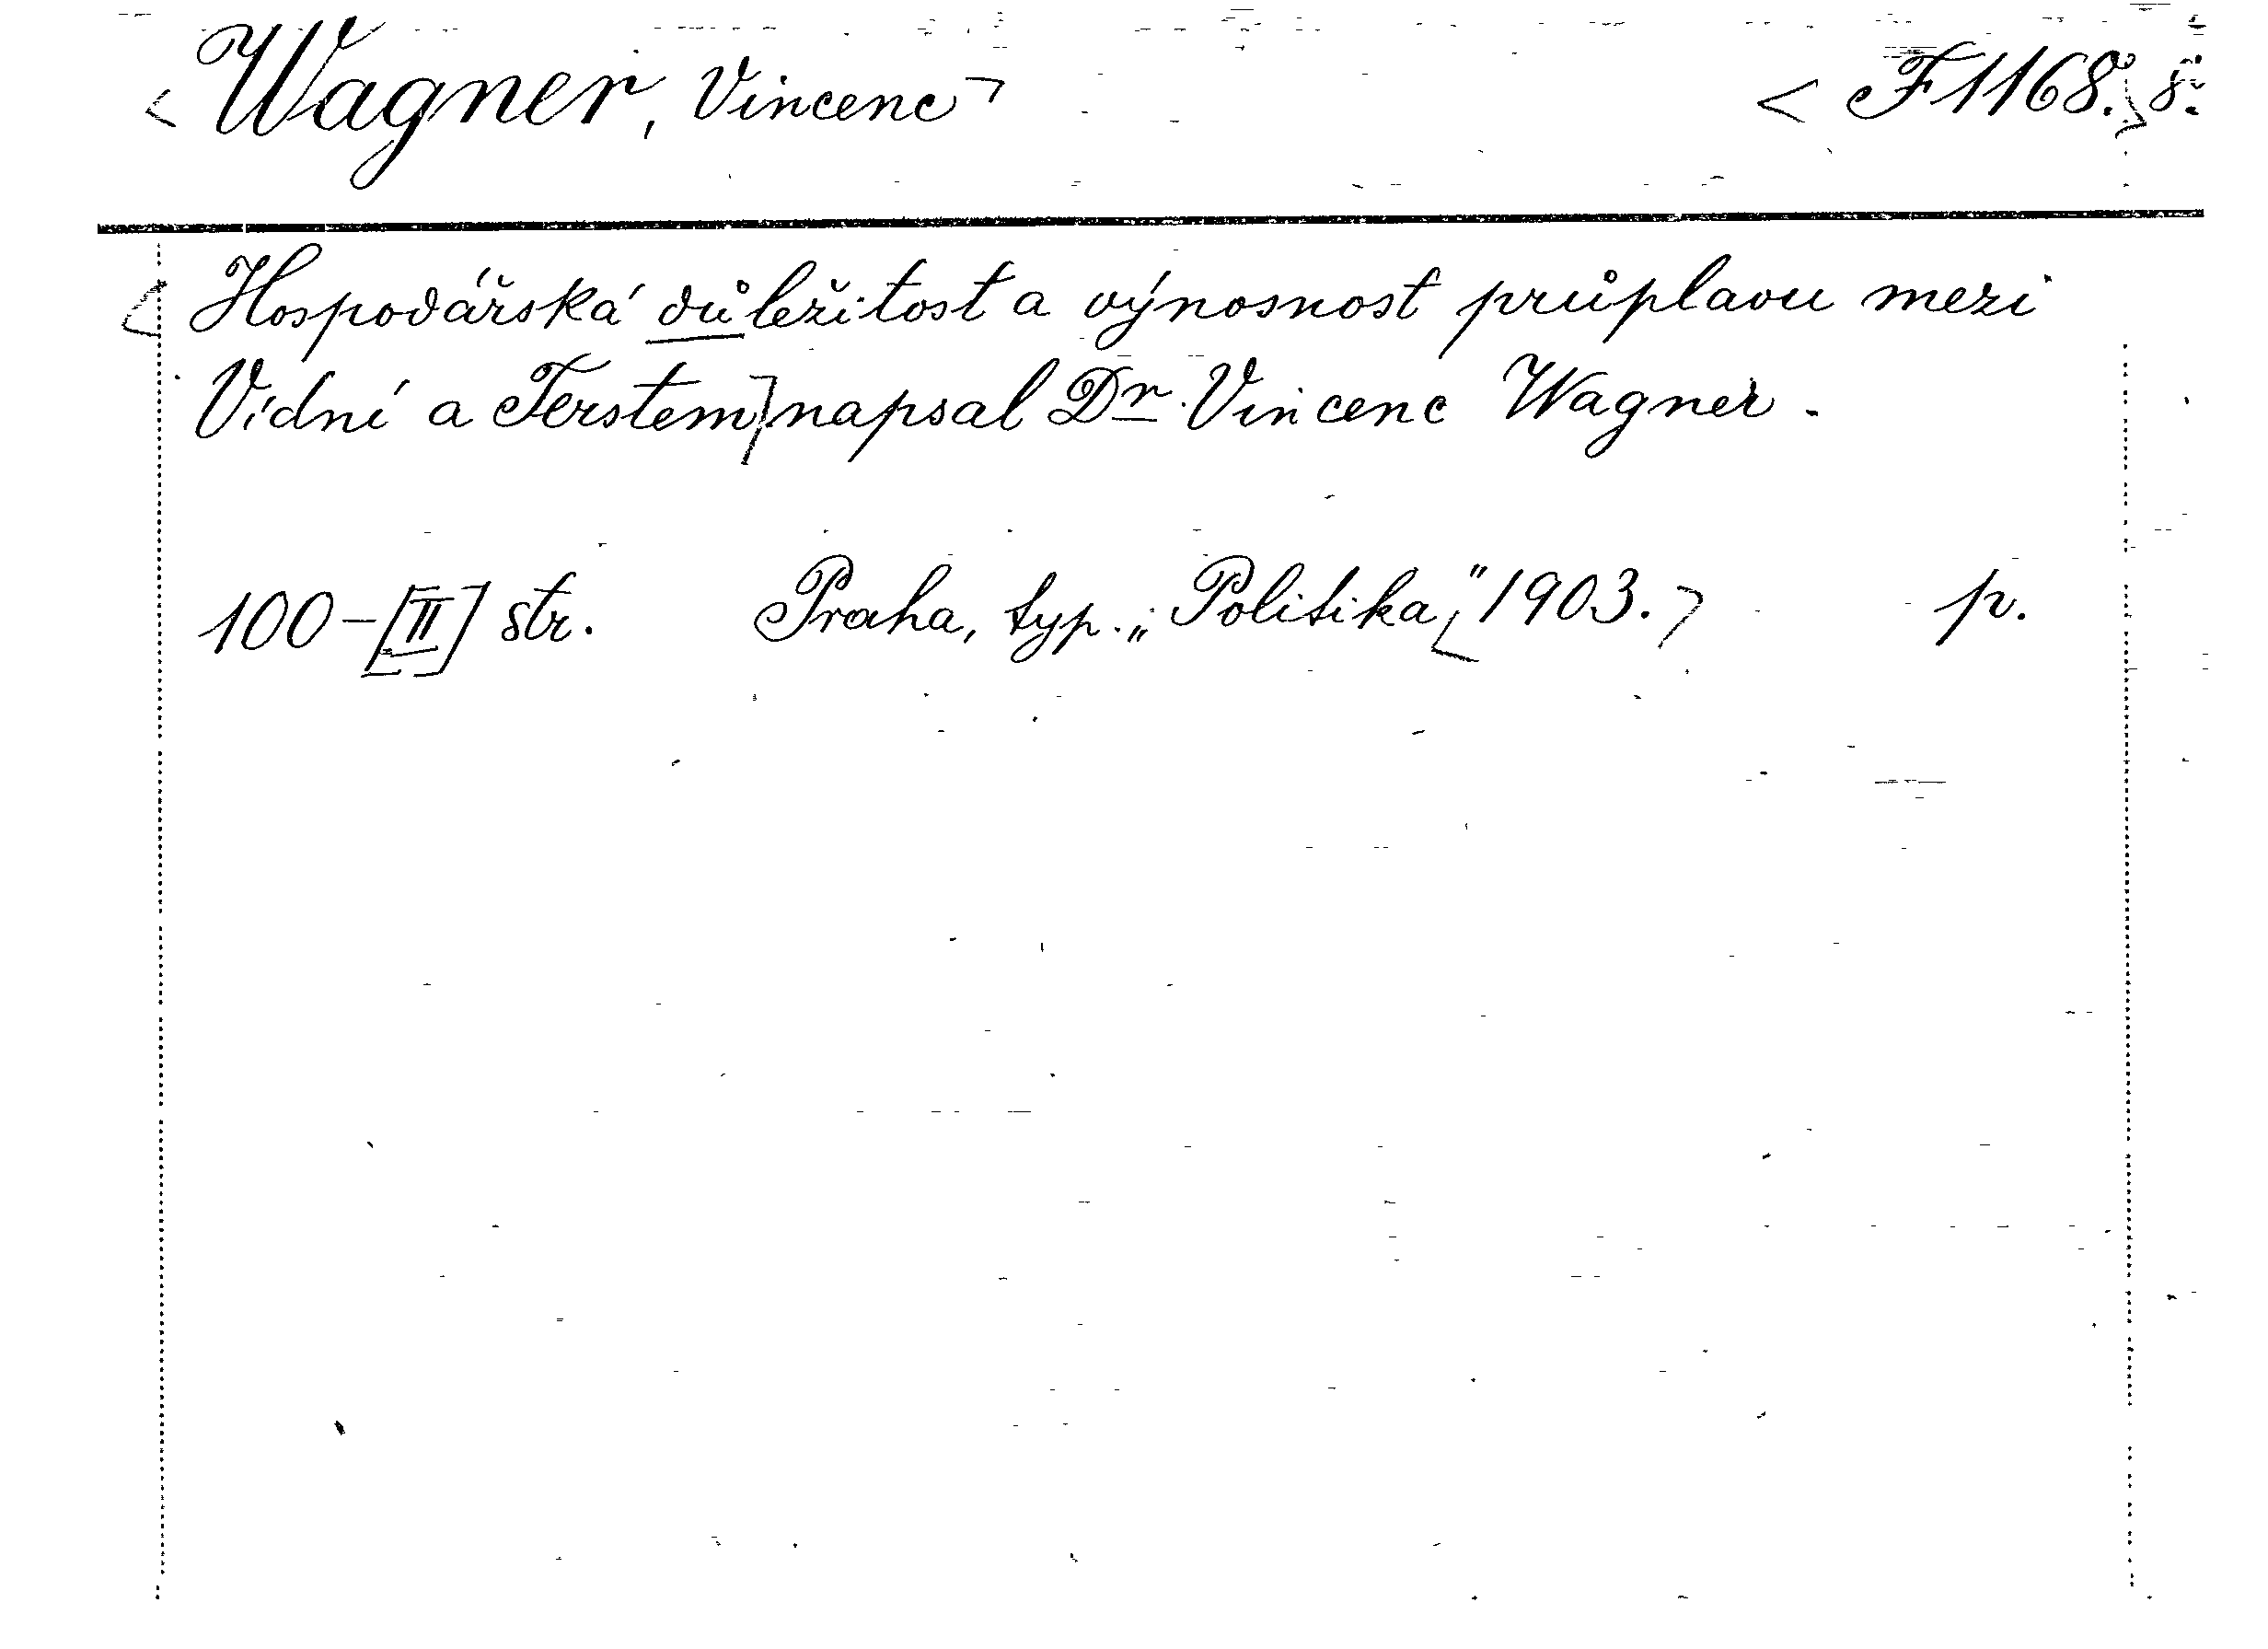 < Wagner, Vincenc > < F 1168. > 8°.
[ Hospodářská důležitost a výnosnost průplavu mezi
Vídní a Terstem ] napsal Dr. Vincenc Wagner.
100-[II] str. Praha, typ. „Politika“ [ 1903. ] p.